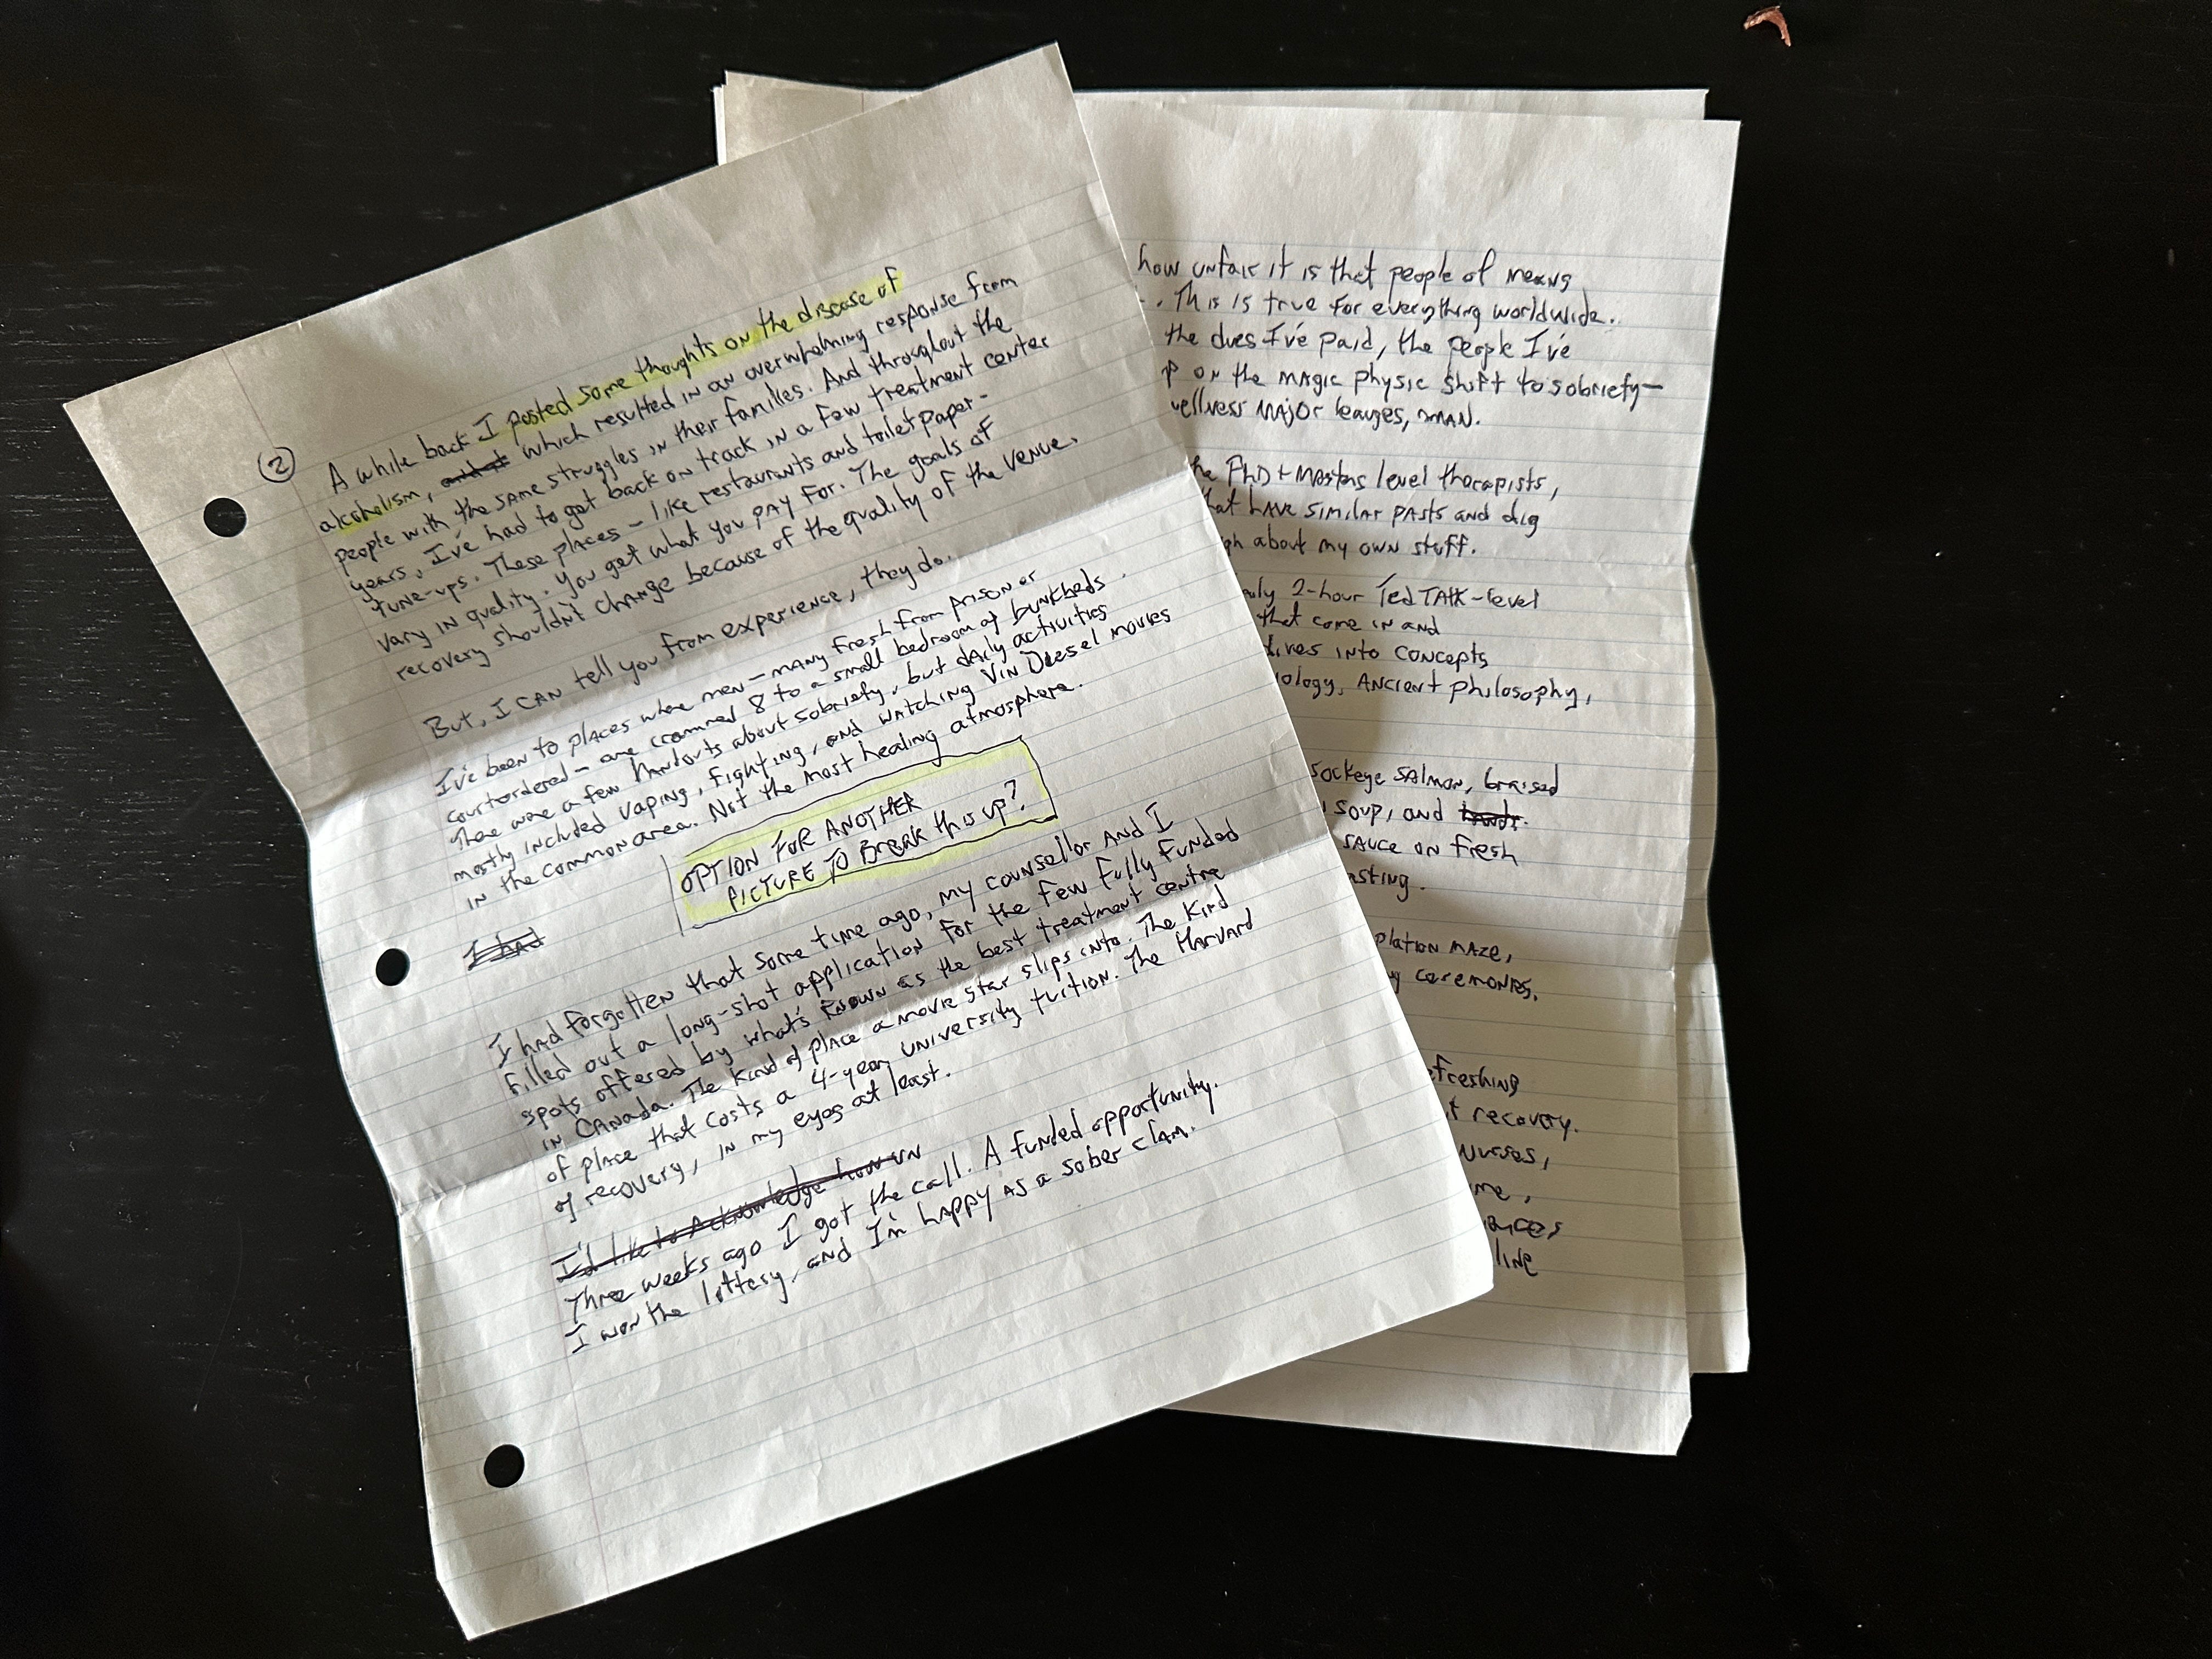 ②
A while back I posted some thoughts on the disease of
alcoholism, which resulted in an overwhelming response from
people with the same struggles in their families. And throughout the
years, I've had to get back on track in a few treatment center
tune-ups. These places - like restaurants and toilet paper -
vary in quality. You get what you pay for. The goals of
recovery shouldn't change because of the quality of the venue.
But, I can tell you from experience, they do.
I've been to places where men - many fresh from prison or
courtordered - are crammed 8 to a small bedroom of bunkbeds.
There were a few handouts about sobriety, but daily activities
mostly included vaping, fighting, and watching Vin Diesel movies
in the common area. Not the most healing atmosphere.
OPTION FOR ANOTHER
PICTURE TO BREAK this UP?
I had
I had forgotten that some time ago, my counsellor and I
filled out a long-shot application for the few fully funded
spots offered by what's known as the best treatment centre
in Canada. The kind of place a movie star slips into. The kind
of place that costs a 4-year university tuition. The Harvard
of recovery, in my eyes at least.
I'd like to acknowledge how un
Three weeks ago I got the call. A funded opportunity.
I won the lottery, and I'm happy as a sober clam.
how unfair it is that people of means
. This is true for everything worldwide.
the dues I've paid, the people I've
p on the magic physic shift to sobriety-
wellness major leauges, man.
he PhD + Masters level therapists,
that have similar pasts and dig
gh about my own stuff.
2-hour Ted TALK-level
that come in and
dives into concepts
ology, Ancient philosophy,
sockeye salmon, braised
soup, and
sauce on fresh
asting.
plation maze,
y ceremonies.
efreshing
t recovery.
nurses,
me,
ances
line